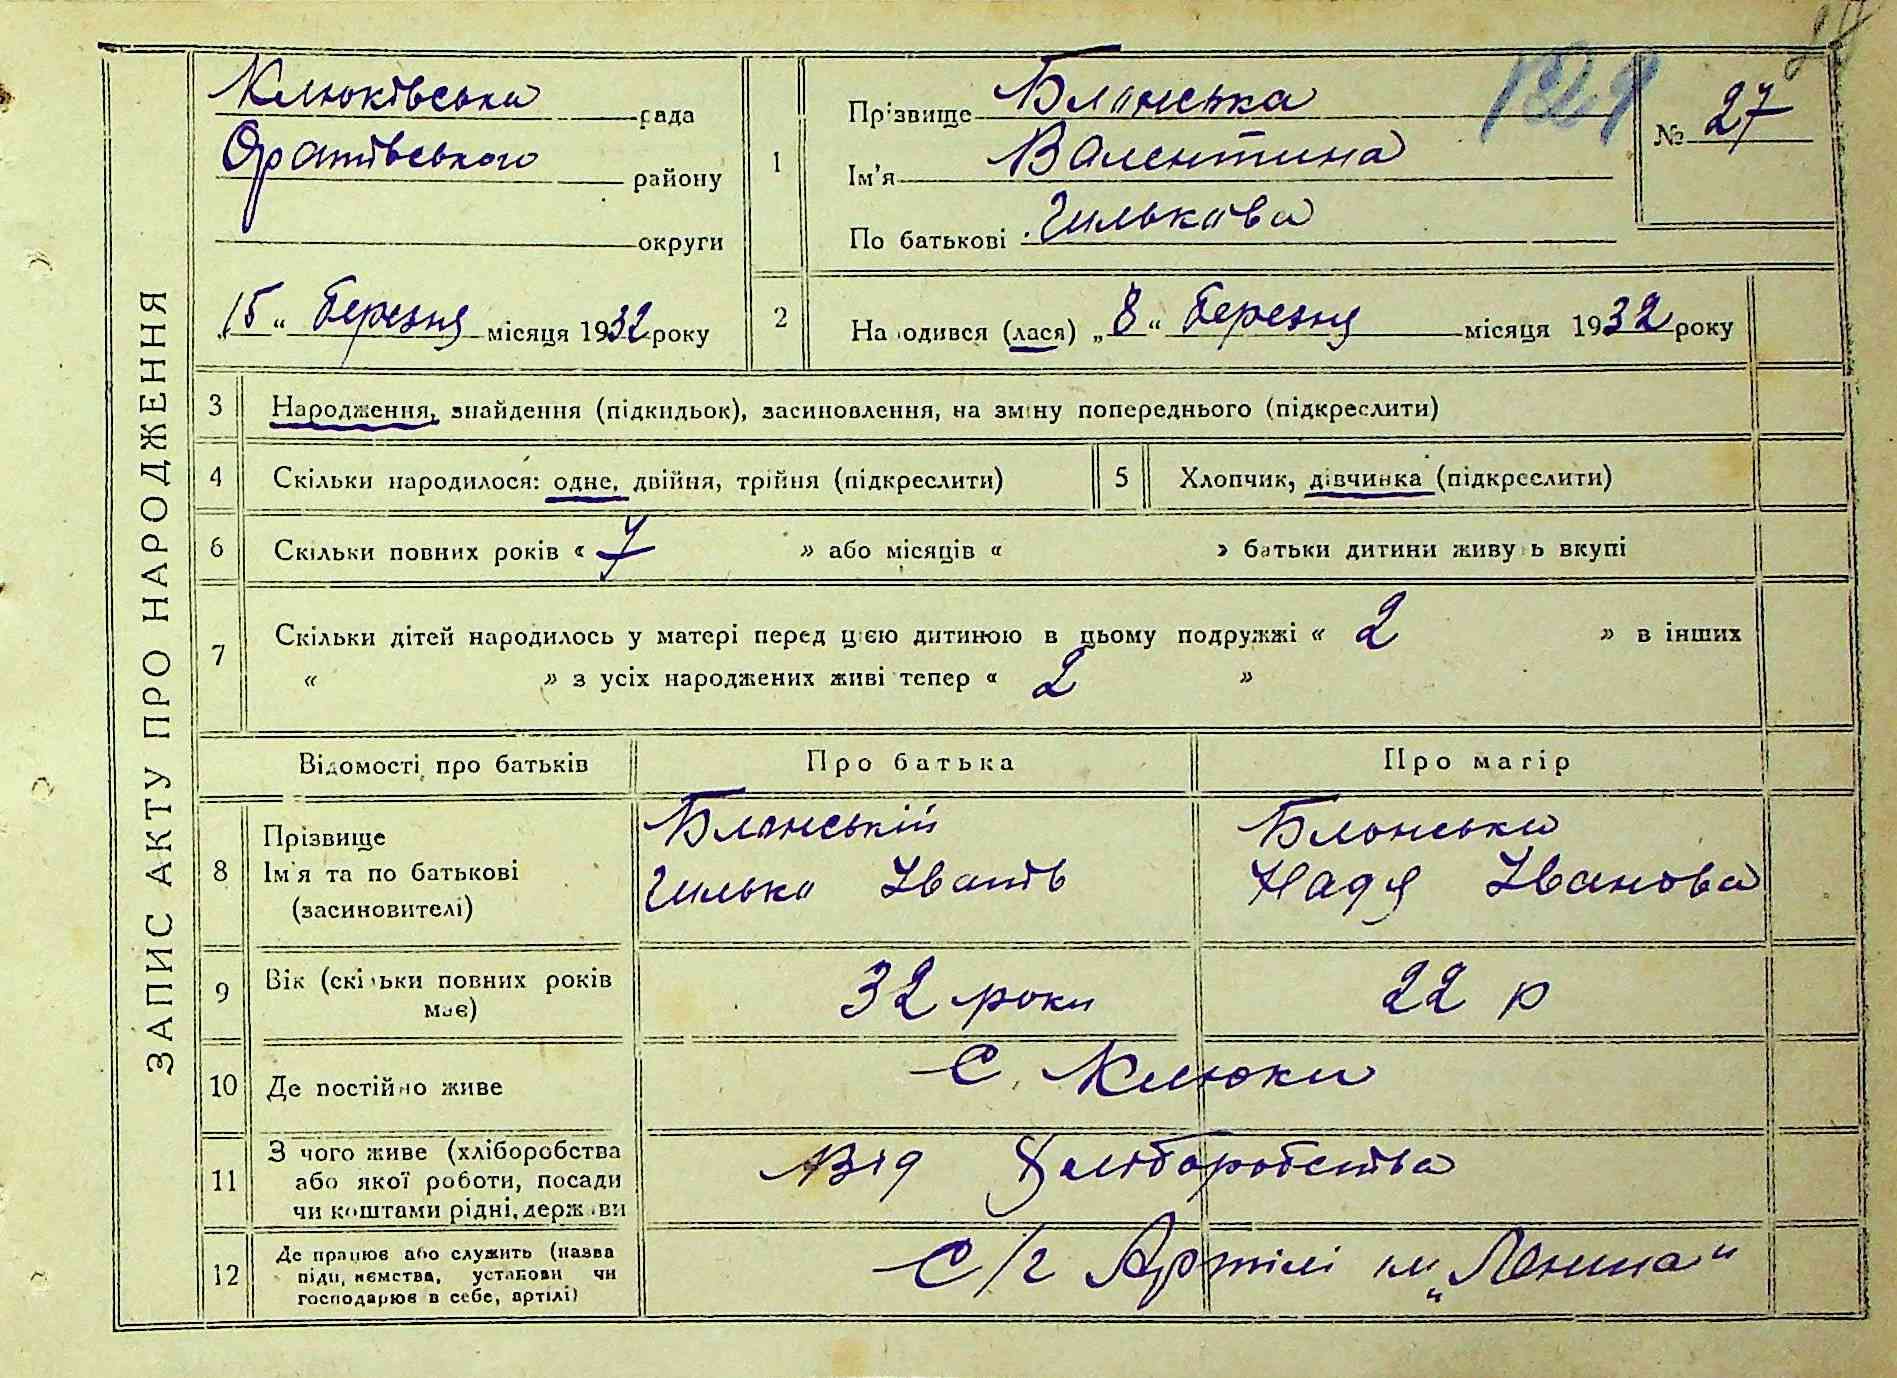 ЗАПИС АКТУ ПРО НАРОДЖЕННЯ
Клюківська рада
Оратівського району
округи
„15“ березня місяця 1932 року
1
Прізвище Блонська
Ім'я Валентина
По батькові Гилькова
129
№ 27
2
Народився (лася) „8“ березня місяця 1932 року
3 Народження, знайдення (підкидьок), засиновлення, на зміну попереднього (підкреслити)
4 Скільки народилося: одне, двійня, трійня (підкреслити)
5 Хлопчик, дівчинка (підкреслити)
6 Скільки повних років « 7 » або місяців « » батьки дитини живуть вкупі
7 Скільки дітей народилось у матері перед цією дитиною в цьому подружжі « 2 » в інших
« » з усіх народжених живі тепер « 2 »
Відомості про батьків Про батька Про матір
8 Прізвище
Ім'я та по батькові
(засиновителі)
Блонській
Гилько Івать
Блонська
Надя Іванова
9 Вік (скільки повних років
має)
32 роки
22 р
10 Де постійно живе
с. Клюки
11 З чого живе (хліборобства
або якої роботи, посади
чи коштами рідні, держави
Від Хліборобства
12 Де працює або служить (назва
підприємства, установи чи
господарює в себе, артілі)
С/г Артілі ім „Леніна“